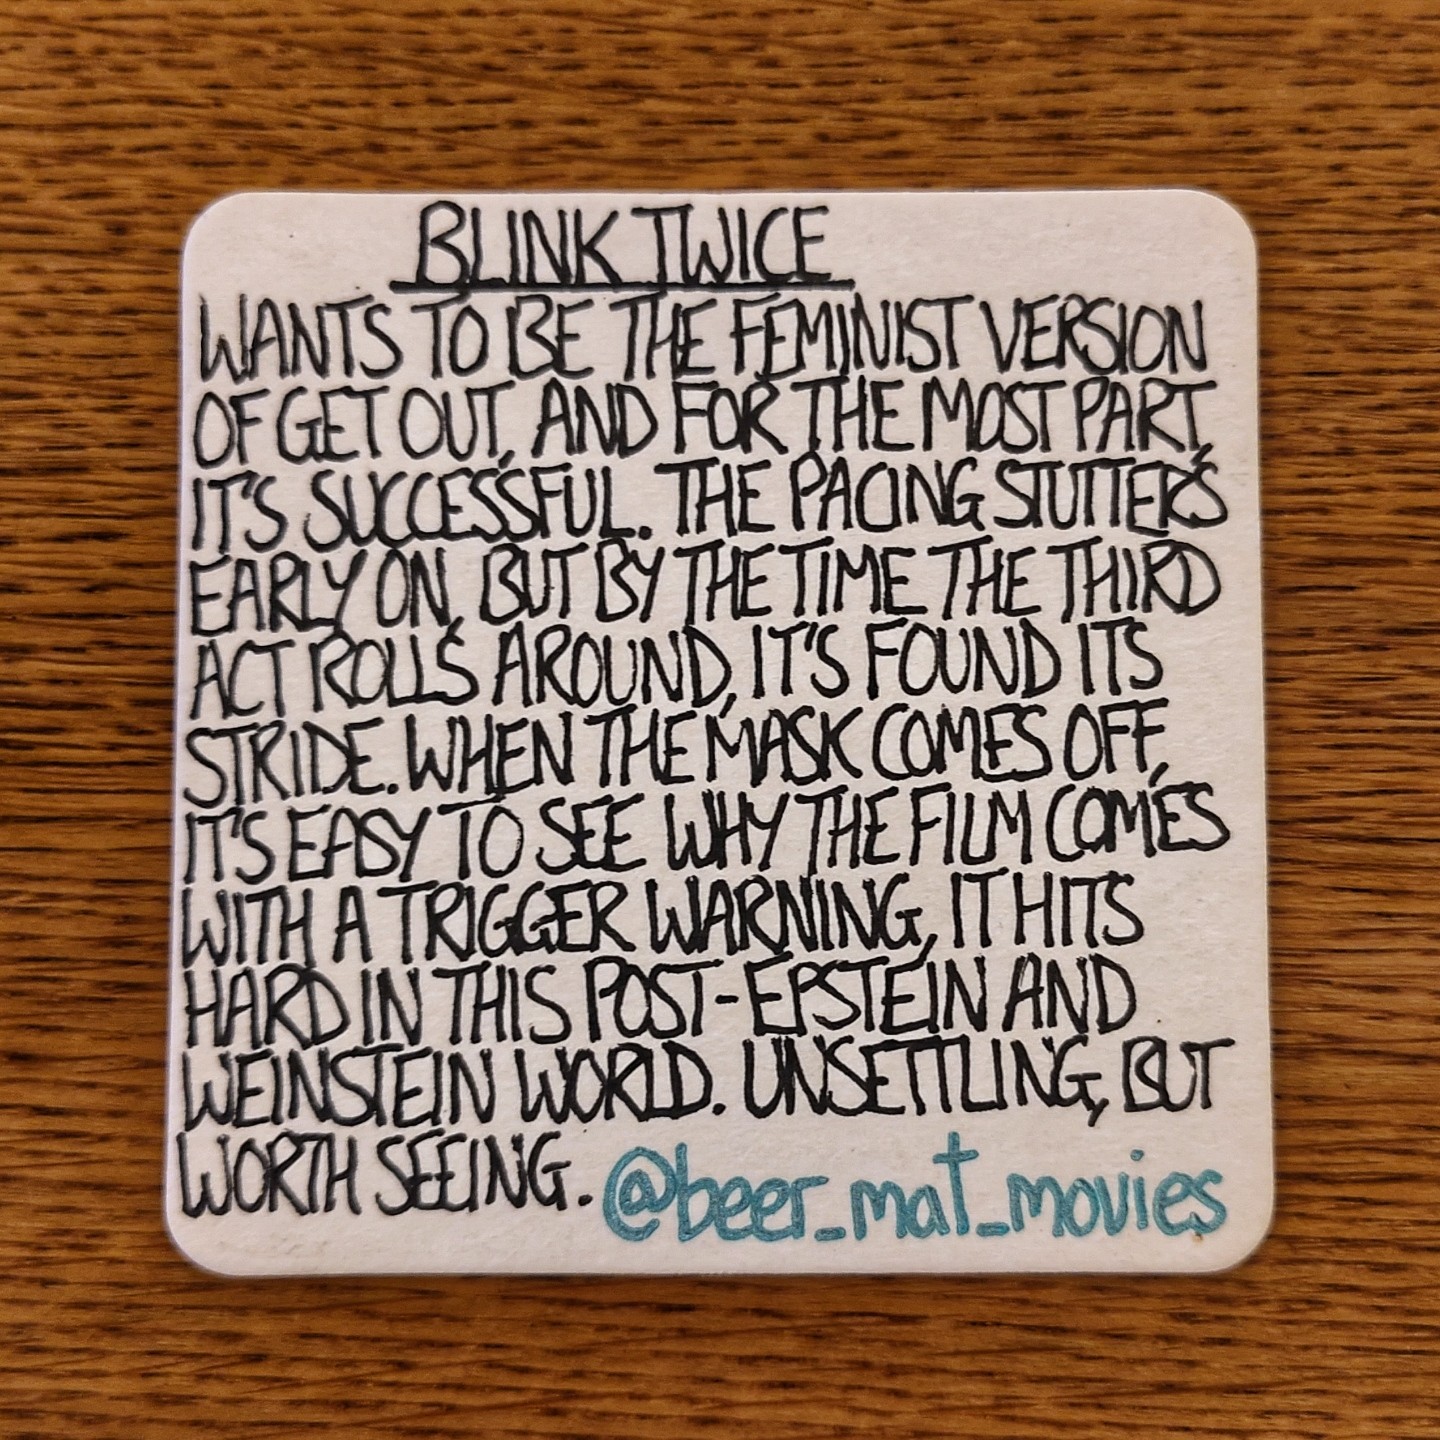 BLINK TWICE
WANTS TO BE THE FEMINIST VERSION
OF GET OUT, AND FOR THE MOST PART,
IT'S SUCCESSFUL. THE PACING STUTTERS
EARLY ON, BUT BY THE TIME THE THIRD
ACT ROLLS AROUND, IT'S FOUND ITS
STRIDE. WHEN THE MASK COMES OFF,
IT'S EASY TO SEE WHY THE FILM COMES
WITH A TRIGGER WARNING, IT HITS
HARD IN THIS POST-EPSTEIN AND
WEINSTEIN WORLD. UNSETTLING, BUT
WORTH SEEING. @beer_mat_movies